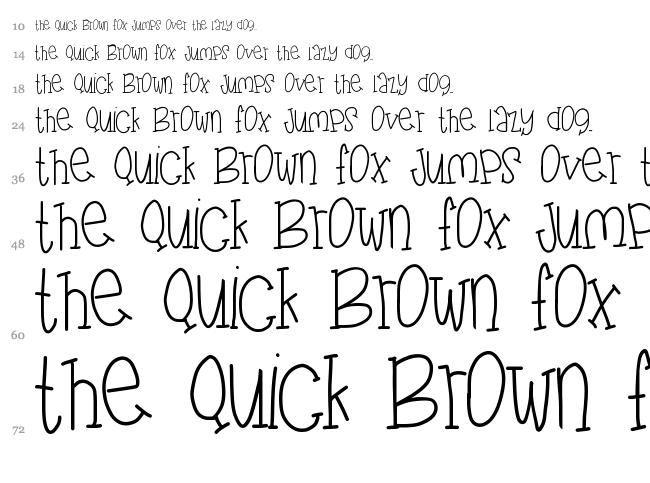 10 the Quick Brown fox jumps over the lazy dog.
14 the Quick Brown fox jumps over the lazy dog.
18 the Quick Brown fox jumps over the lazy dog.
24 the Quick Brown fox jumps over the lazy dog.
36 the Quick Brown fox jumps over t
48 the Quick Brown fox jump
60 the Quick Brown fox
72 the Quick Brown f